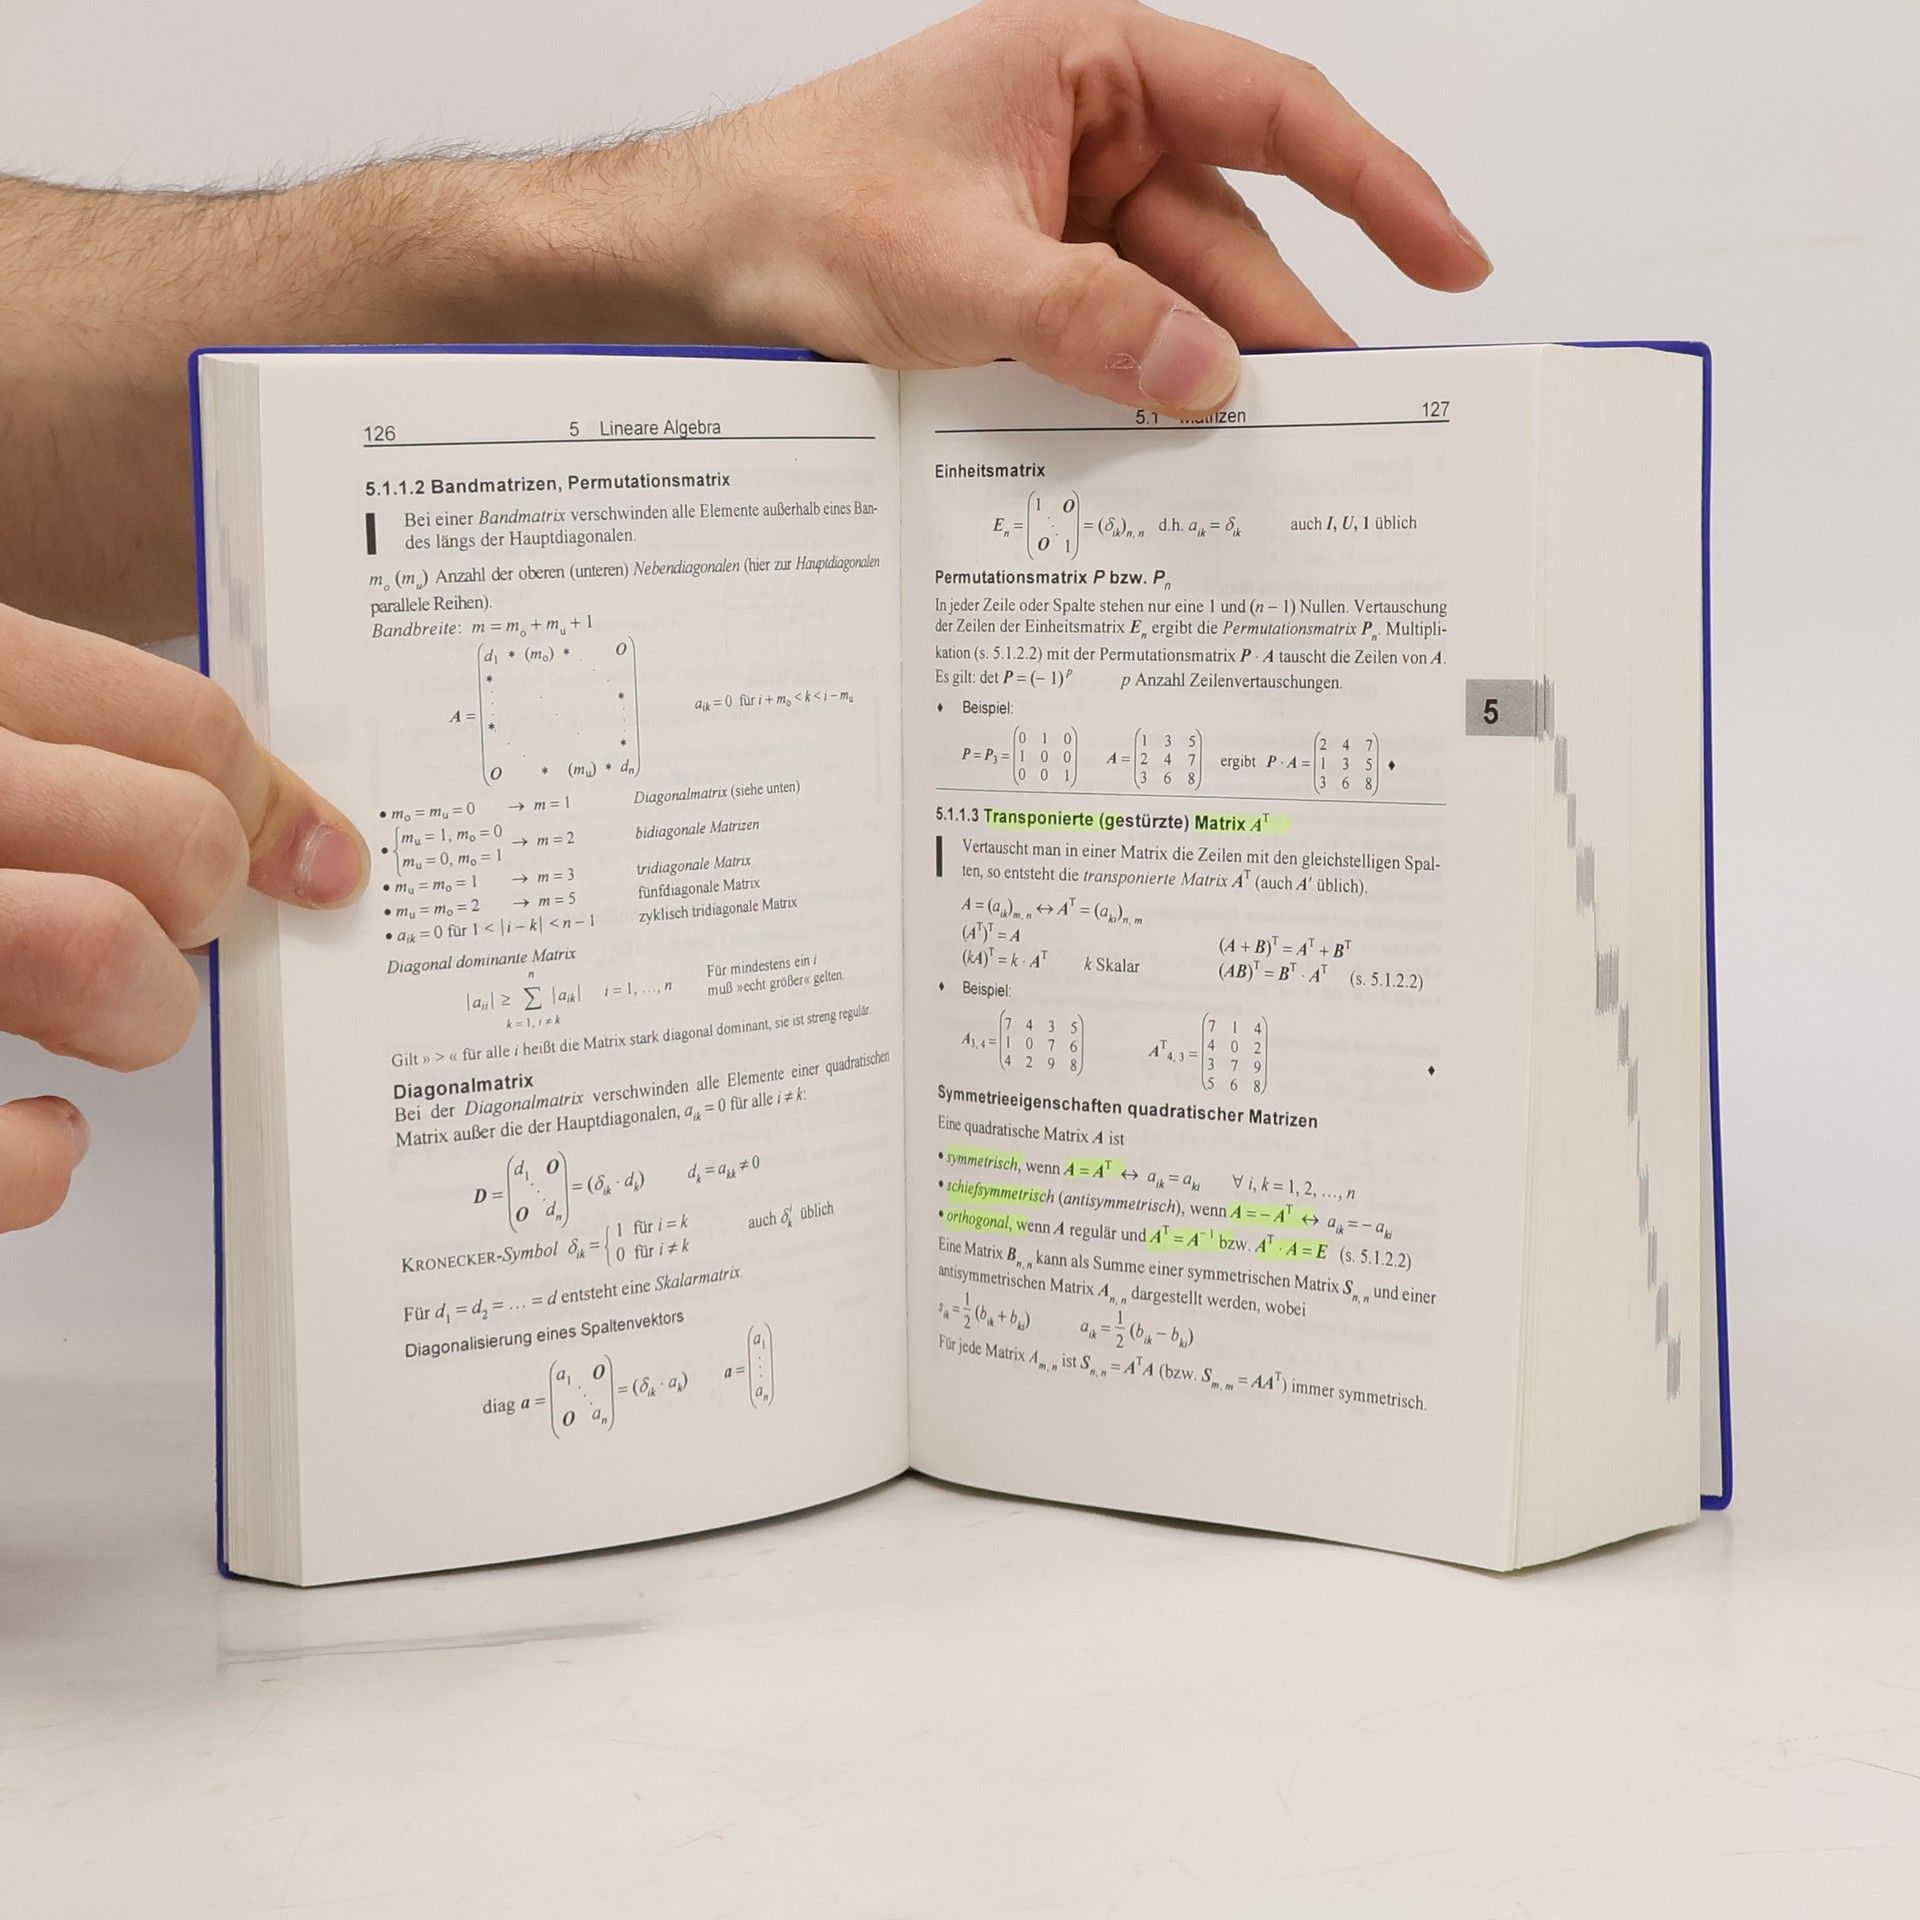 126 5 Lineare Algebra
5.1.1.2 Bandmatrizen, Permutationsmatrix
Bei einer Bandmatrix verschwinden alle Elemente außerhalb eines Ban-
des längs der Hauptdiagonalen.
mₒ (mᵤ) Anzahl der oberen (unteren) Nebendiagonalen (hier zur Hauptdiagonalen
parallele Reihen).
Bandbreite: m = mₒ + mᵤ + 1
d₁ * (mₒ) * O
*
*
A = aᵢₖ = 0 für i + mₒ < k < i − mᵤ
*
*
O * (mᵤ) * dₙ
• mₒ = mᵤ = 0 → m = 1 Diagonalmatrix (siehe unten)
• { mᵤ = 1, mₒ = 0 → m = 2 bidiagonale Matrizen
mᵤ = 0, mₒ = 1
• mᵤ = mₒ = 1 → m = 3 tridiagonale Matrix
• mᵤ = mₒ = 2 → m = 5 fünfdiagonale Matrix
• aᵢₖ = 0 für 1 < |i − k| < n − 1 zyklisch tridiagonale Matrix
Diagonal dominante Matrix
n
|aᵢᵢ| ≥ Σ |aᵢₖ| i = 1, …, n Für mindestens ein i
k = 1, i ≠ k muß »echt größer« gelten.
Gilt » > « für alle i heißt die Matrix stark diagonal dominant, sie ist streng regulär.
Diagonalmatrix
Bei der Diagonalmatrix verschwinden alle Elemente einer quadratischen
Matrix außer die der Hauptdiagonalen, aᵢₖ = 0 für alle i ≠ k:
d₁ O
D = ⋱ = (δᵢₖ · dₖ) dₖ = aₖₖ ≠ 0
O dₙ
KRONECKER-Symbol δᵢₖ = { 1 für i = k auch δⁱₖ üblich
0 für i ≠ k
Für d₁ = d₂ = … = d entsteht eine Skalarmatrix.
Diagonalisierung eines Spaltenvektors
a₁ O a₁
diag a = ⋱ = (δᵢₖ · aₖ) a = ⋮
O aₙ aₙ
5.1 Matrizen 127
Einheitsmatrix
1 O
Eₙ = ⋱ = (δᵢₖ)ₙ, ₙ d.h. aᵢₖ = δᵢₖ auch I, U, 1 üblich
O 1
Permutationsmatrix P bzw. Pₙ
In jeder Zeile oder Spalte stehen nur eine 1 und (n − 1) Nullen. Vertauschung
der Zeilen der Einheitsmatrix Eₙ ergibt die Permutationsmatrix Pₙ. Multipli-
kation (s. 5.1.2.2) mit der Permutationsmatrix P · A tauscht die Zeilen von A.
Es gilt: det P = (− 1)ᵖ p Anzahl Zeilenvertauschungen.
♦ Beispiel:
0 1 0 1 3 5 2 4 7
P = P₃ = 1 0 0 A = 2 4 7 ergibt P · A = 1 3 5 ♦
0 0 1 3 6 8 3 6 8
5
5.1.1.3 Transponierte (gestürzte) Matrix Aᵀ
Vertauscht man in einer Matrix die Zeilen mit den gleichstelligen Spal-
ten, so entsteht die transponierte Matrix Aᵀ (auch A′ üblich).
A = (aᵢₖ)ₘ, ₙ ↔ Aᵀ = (aₖᵢ)ₙ, ₘ
(Aᵀ)ᵀ = A (A + B)ᵀ = Aᵀ + Bᵀ
(kA)ᵀ = k · Aᵀ k Skalar (AB)ᵀ = Bᵀ · Aᵀ (s. 5.1.2.2)
♦ Beispiel:
7 4 3 5 7 1 4
A₃, ₄ = 1 0 7 6 Aᵀ₄, ₃ = 4 0 2
4 2 9 8 3 7 9
5 6 8 ♦
Symmetrieeigenschaften quadratischer Matrizen
Eine quadratische Matrix A ist
• symmetrisch, wenn A = Aᵀ ↔ aᵢₖ = aₖᵢ ∀ i, k = 1, 2, …, n
• schiefsymmetrisch (antisymmetrisch), wenn A = − Aᵀ ↔ aᵢₖ = − aₖᵢ
• orthogonal, wenn A regulär und Aᵀ = A⁻¹ bzw. Aᵀ · A = E (s. 5.1.2.2)
Eine Matrix Bₙ, ₙ kann als Summe einer symmetrischen Matrix Sₙ, ₙ und einer
antisymmetrischen Matrix Aₙ, ₙ dargestellt werden, wobei
sᵢₖ = 1/2 (bᵢₖ + bₖᵢ) aᵢₖ = 1/2 (bᵢₖ − bₖᵢ)
Für jede Matrix Aₘ, ₙ ist Sₙ, ₙ = AᵀA (bzw. Sₘ, ₘ = AAᵀ) immer symmetrisch.